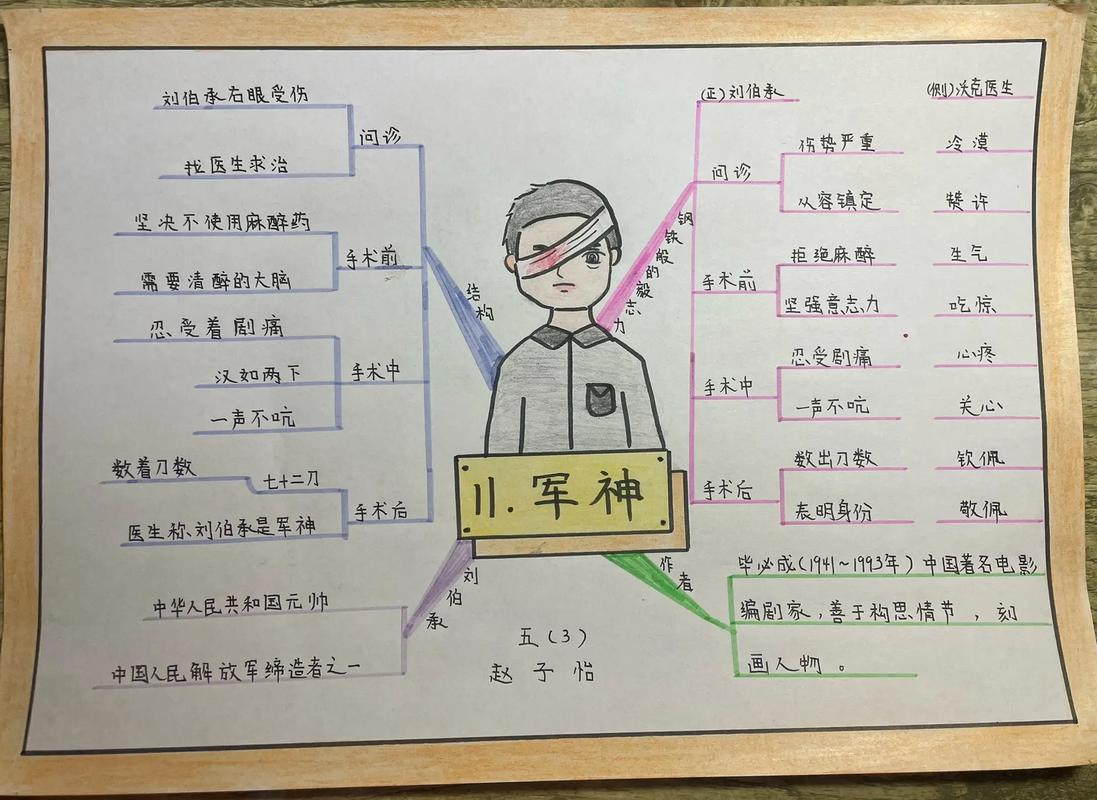 刘伯承右眼受伤
找医生求治
问诊
坚决不使用麻醉药
需要清醉的大脑
手术前
忍受着剧痛
汉如两下
一声不吭
手术中
数着刀数
七十二刀
医生称刘伯承是军神
手术后
结构
(正)刘伯承
(侧)沃克医生
钢铁般的毅志力
问诊
伤势严重
冷漠
从容镇定
赞许
手术前
拒绝麻醉
生气
坚强意志力
吃惊
手术中
忍受剧痛
心疼
一声不吭
关心
手术后
数出刀数
钦佩
表明身份
敬佩
11.军神
刘伯承
中华人民共和国元帅
中国人民解放军缔造者之一
作者
毕必成(1941~1993年)中国著名电影
编剧家,善于构思情节,刻
画人物。
五(3)
赵子怡